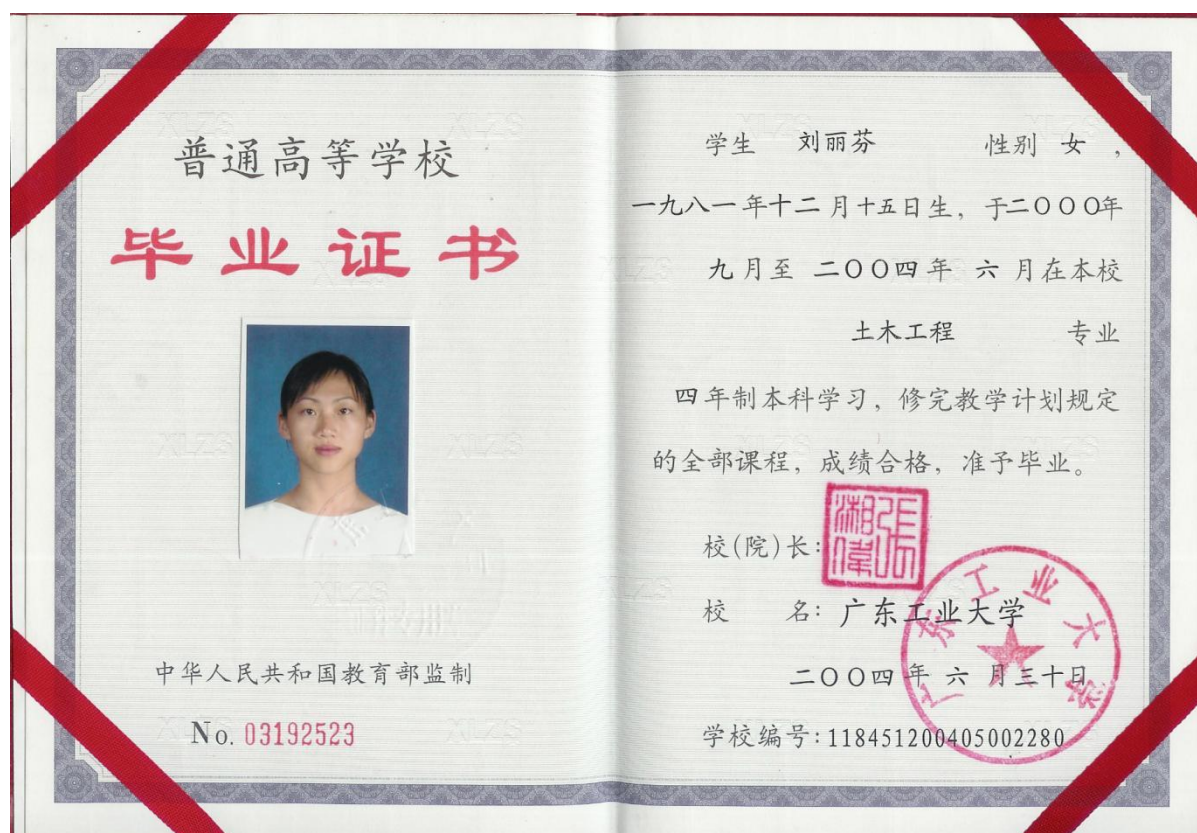 普通高等学校
毕业证书
中华人民共和国教育部监制
No. 03192523
学生 刘丽芬 性别 女,
一九八一年十二月十五日生, 于二〇〇〇年
九月至 二〇〇四年 六 月在本校
土木工程 专业
四年制本科学习, 修完教学计划规定
的全部课程, 成绩合格, 准予毕业。
校(院)长: 張湘偉
校 名: 广东工业大学
二〇〇四年 六 月三十日
广东工业大学
学校编号:118451200405002280
XLZS